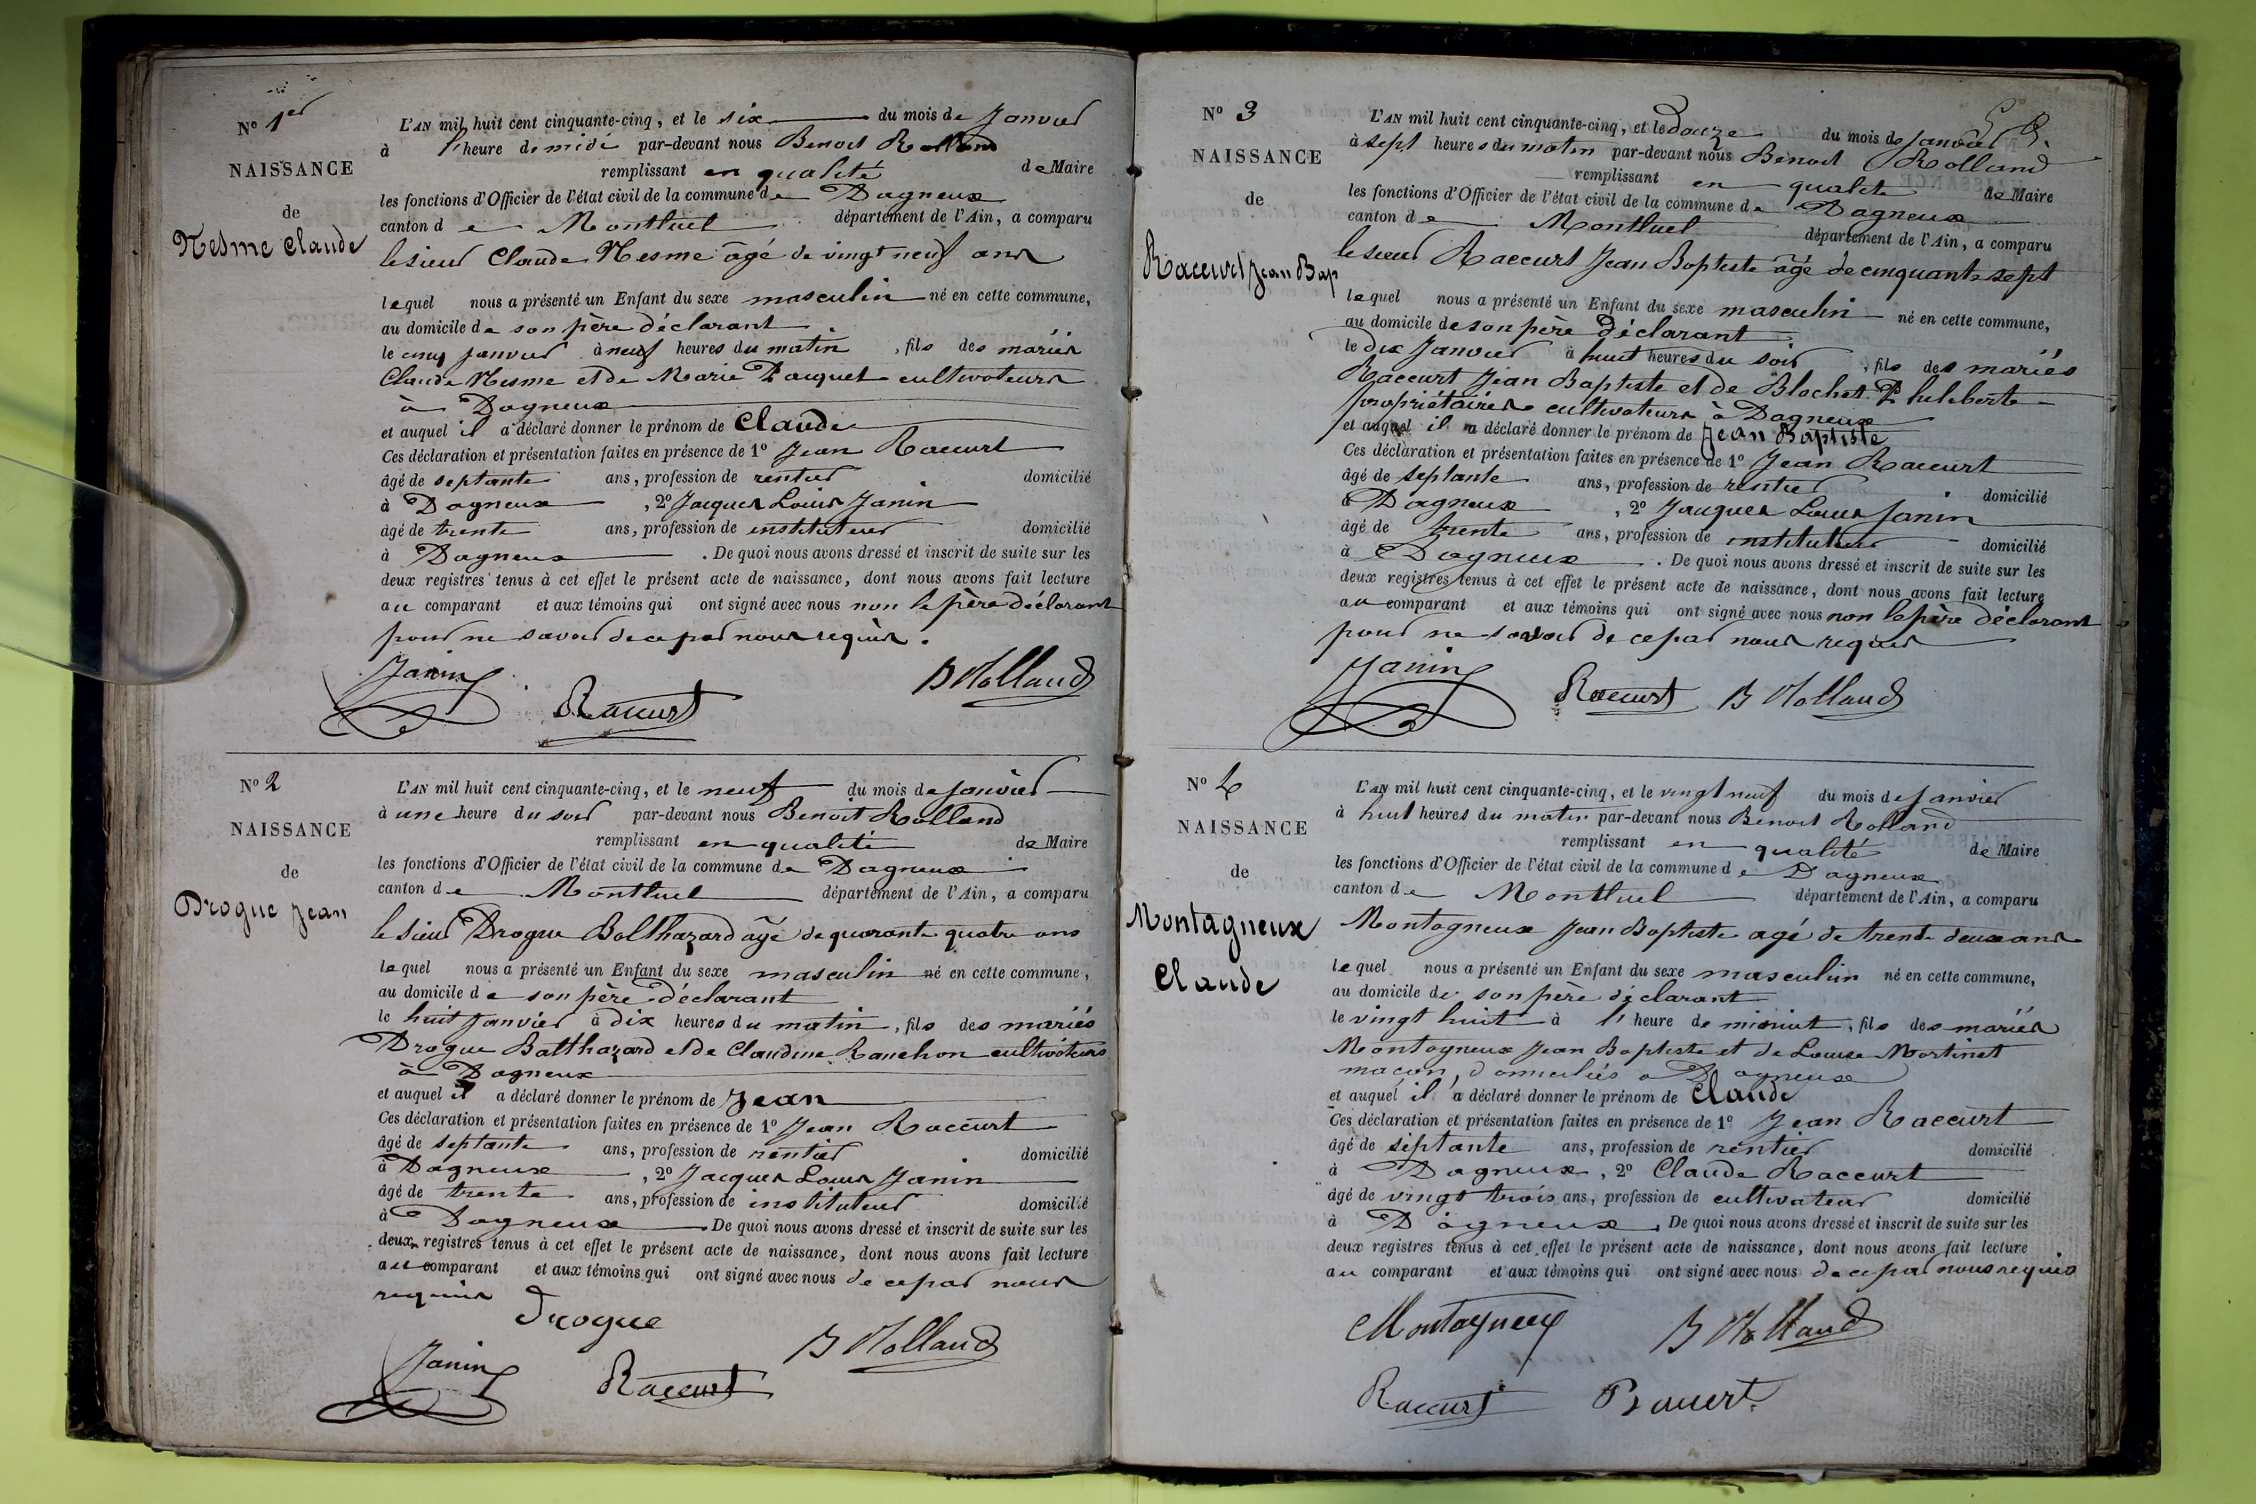 N° 1er
NAISSANCE
de
Nesme Claude
L'AN mil huit cent cinquante-cinq, et le six du mois de Janvier
à l'heure de midi par-devant nous Benoit Rolland
remplissant en qualité de Maire
les fonctions d'Officier de l'état civil de la commune de Dagneux
canton de Montluel département de l'Ain, a comparu
le sieur Claude Nesme âgé de vingt neuf ans
lequel nous a présenté un Enfant du sexe masculin né en cette commune,
au domicile de son père déclarant
le cinq janvier à neuf heures du matin, fils des mariés
Claude Nesme et de Marie Pauquet cultivateurs
à Dagneux
et auquel il a déclaré donner le prénom de Claude
Ces déclaration et présentation faites en présence de 1° Jean Raccurt
âgé de septante ans, profession de rentier domicilié
à Dagneux, 2° Jacques Louis Janin
âgé de trente ans, profession de instituteur domicilié
à Dagneux. De quoi nous avons dressé et inscrit de suite sur les
deux registres tenus à cet effet le présent acte de naissance, dont nous avons fait lecture
au comparant et aux témoins qui ont signé avec nous non le père déclarant
pour ne savoir de ce par nous requis.
Janin
Raccurt
B Rolland
N° 2
NAISSANCE
de
Drogue Jean
L'AN mil huit cent cinquante-cinq, et le neuf du mois de janvier
à une heure du soir par-devant nous Benoit Rolland
remplissant en qualité de Maire
les fonctions d'Officier de l'état civil de la commune de Dagneux
canton de Montluel département de l'Ain, a comparu
le sieur Drogue Balthazard âgé de quarante quatre ans
lequel nous a présenté un Enfant du sexe masculin né en cette commune,
au domicile de son père déclarant
le huit janvier à dix heures du matin, fils des mariés
Drogue Balthazard et de Claudine Ranchon cultivateurs
à Dagneux
et auquel il a déclaré donner le prénom de Jean
Ces déclaration et présentation faites en présence de 1° Jean Raccurt
âgé de septante ans, profession de rentier domicilié
à Dagneux, 2° Jacques Louis Janin
âgé de trente ans, profession de instituteur domicilié
à Dagneux. De quoi nous avons dressé et inscrit de suite sur les
deux registres tenus à cet effet le présent acte de naissance, dont nous avons fait lecture
au comparant et aux témoins qui ont signé avec nous de ce par nous
requis
Drogue
B Rolland
Janin
Raccurt
N° 3
NAISSANCE
de
Raccurt Jean Bap
L'AN mil huit cent cinquante-cinq, et le douze du mois de janvier
à sept heures du matin par-devant nous Benoit Rolland
remplissant en qualité de Maire
les fonctions d'Officier de l'état civil de la commune de Dagneux
canton de Montluel département de l'Ain, a comparu
le sieur Raccurt Jean Baptiste âgé de cinquante sept
lequel nous a présenté un Enfant du sexe masculin né en cette commune,
au domicile de son père déclarant
le dix Janvier à huit heures du soir, fils des mariés
Raccurt Jean Baptiste et de Blachet
propriétaires cultivateurs à Dagneux
et auquel il a déclaré donner le prénom de Jean Baptiste
Ces déclaration et présentation faites en présence de 1° Jean Raccurt
âgé de septante ans, profession de rentier domicilié
à Dagneux, 2° Jacques Louis Janin
âgé de trente ans, profession de instituteur domicilié
à Dagneux. De quoi nous avons dressé et inscrit de suite sur les
deux registres tenus à cet effet le présent acte de naissance, dont nous avons fait lecture
au comparant et aux témoins qui ont signé avec nous non le père déclarant
pour ne savoir de ce par nous requis
Janin
Raccurt
B Rolland
N° 4
NAISSANCE
de
Montagneux
Claude
L'AN mil huit cent cinquante-cinq, et le vingt neuf du mois de janvier
à huit heures du matin par-devant nous Benoit Rolland
remplissant en qualité de Maire
les fonctions d'Officier de l'état civil de la commune de Dagneux
canton de Montluel département de l'Ain, a comparu
Montagneux Jean Baptiste agé de trente deux ans
lequel nous a présenté un Enfant du sexe masculin né en cette commune,
au domicile de son père déclarant
le vingt huit à l'heure de minuit, fils des mariés
Montagneux Jean Baptiste et de Louise Martinet
maçon, domiciliés a Dagneux
et auquel il a déclaré donner le prénom de Claude
Ces déclaration et présentation faites en présence de 1° Jean Raccurt
âgé de septante ans, profession de rentier domicilié
à Dagneux, 2° Claude Raccurt
âgé de vingt trois ans, profession de cultivateur domicilié
à Dagneux. De quoi nous avons dressé et inscrit de suite sur les
deux registres tenus à cet effet le présent acte de naissance, dont nous avons fait lecture
au comparant et aux témoins qui ont signé avec nous de ce par nous requis
Montagneux
B Rolland
Raccurt
Raccurt